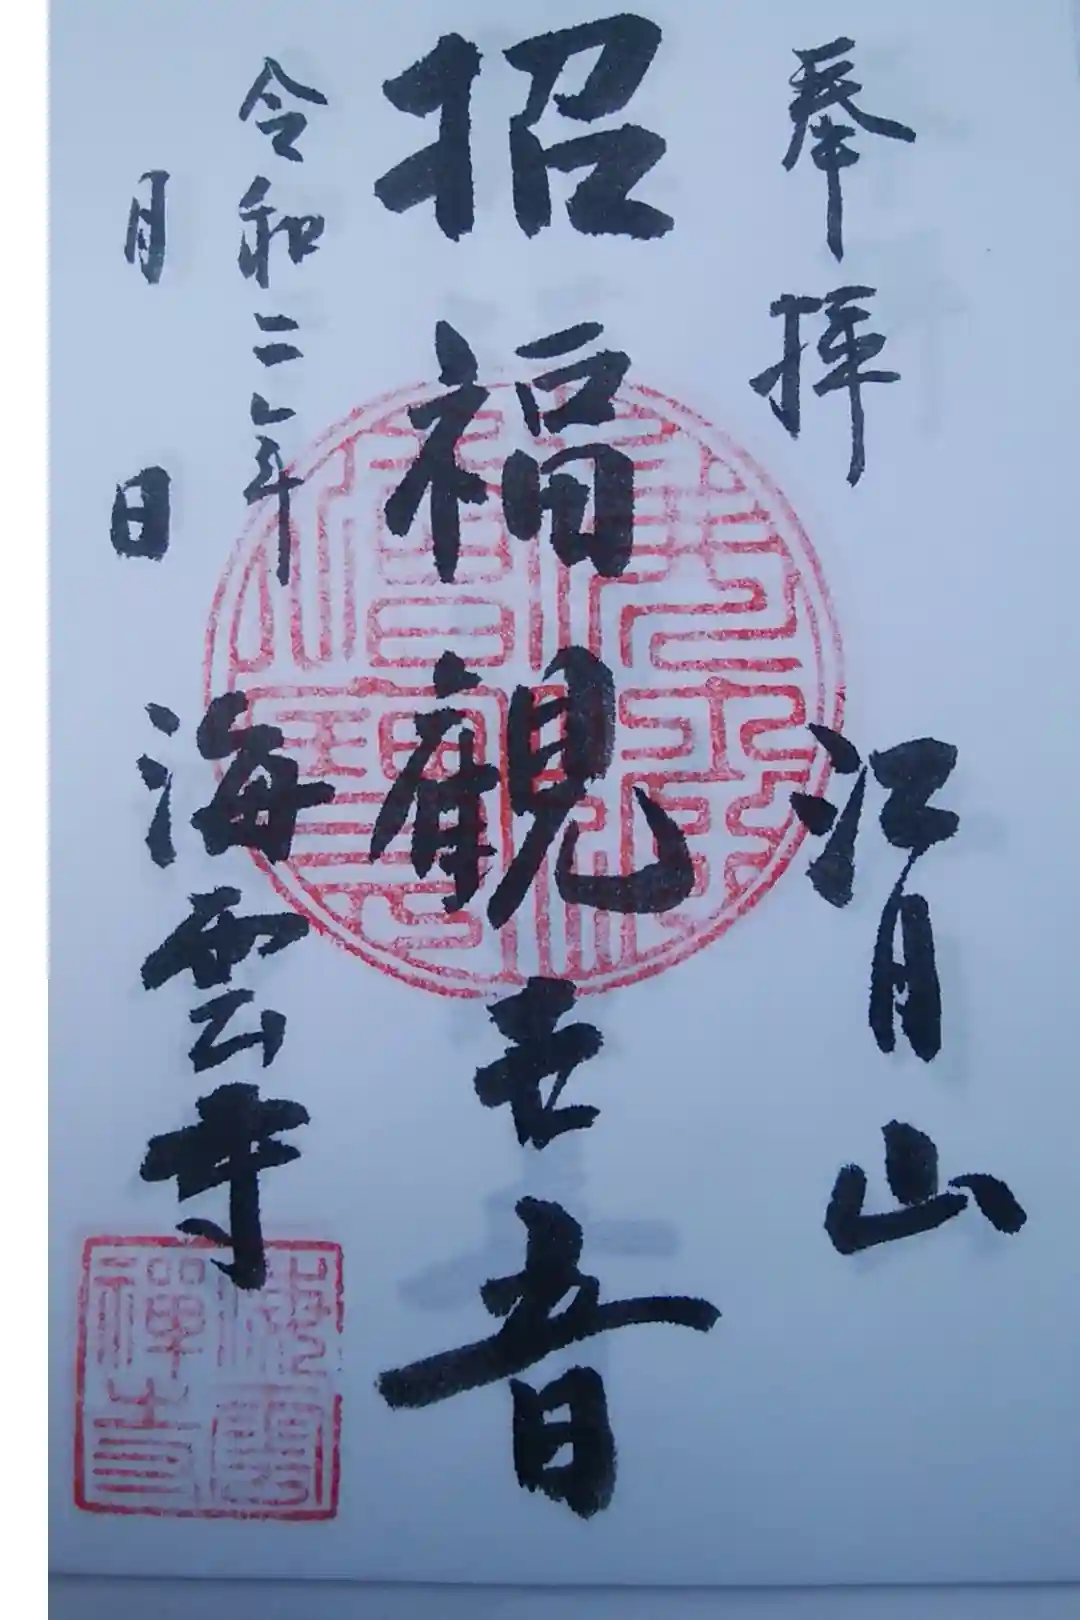 奉拝
江月山
招福観世音
令和二年
月
日
海雲寺
海雲
禅寺